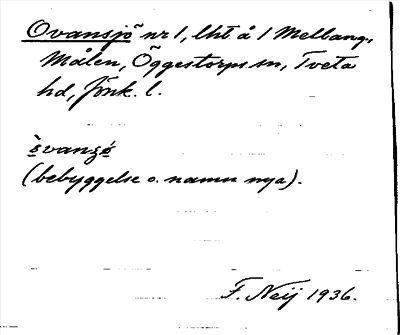 Ovansjö nr 1, lht å 1 Mellang.
Målen, Öggestorps sn, Tveta
hd, Jönk. l.
(bebyggelse o. namn nya).
F. Neij 1936.